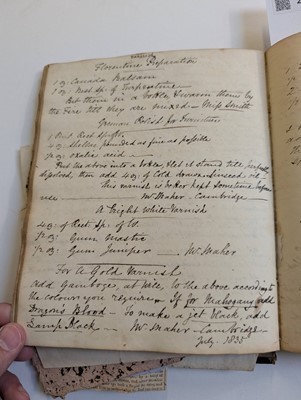 Florentine Preparation
1 oz: Canada Balsam
2 oz: Best Sp: of Turpentine
Put them in a bottle & warm them by
the Fire till they are mixed - Miss Smith
German Polish for Furniture
1 Pint Rect Sp:
4 oz: Shellac, pounded as fine as possible
½ oz: oxalic acid -
Put these into a bottle, & let it stand till perfectly
dissolved, then add 4 oz: of Cold drawn Linseed oil
this varnish is better kept sometime before
use Mr Maher - Cambridge -
A Bright White Varnish
4 oz: of Rect. Sp: of W.
½ oz: Gum Mastic
½ oz: Gum Juniper - Mr Maher
For A Gold Varnish
add Gamboge, at will, to the above according to
the colour you require - If for Mahogany add
Dragons Blood - To make a jet black, add
Lamp Black - Mr Maher - Cambridge -
July - 1835